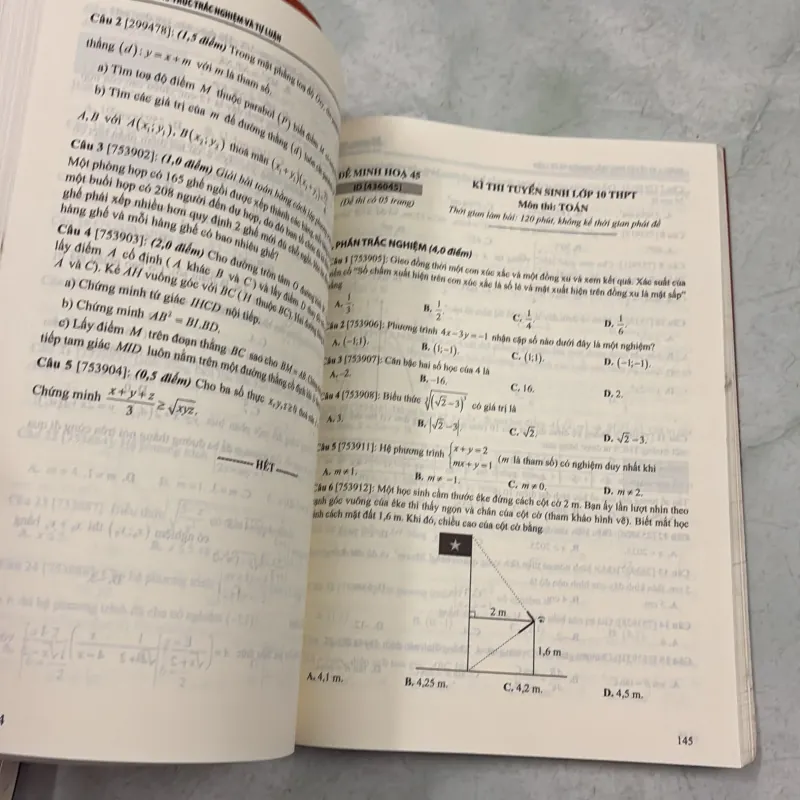 TRÚC TRẮC NGHIỆM VÀ TỰ LUẬN
Câu 2 [299478]: (1,5 điểm) Trong mặt phẳng toạ độ Oxy,
thẳng (d): y = x + m với m là tham số.
a) Tìm toạ độ điểm M thuộc parabol (P) biết điểm M
b) Tìm các giá trị của m để đường thẳng (d) luôn cắt
A, B với A(x₁; y₁), B(x₂; y₂) thoả mãn
Câu 3 [753902]: (1,0 điểm) Giải bài toán bằng cách lập
Một phòng họp có 165 ghế ngồi được xếp thành các hàng,
một buổi họp có 208 người đến dự họp, do đó ban tổ chức đã
ghế phải xếp nhiều hơn quy định 2 ghế mới đủ chỗ ngồi.
hàng ghế và mỗi hàng ghế có bao nhiêu ghế?
Câu 4 [753903]: (2,0 điểm) Cho đường tròn tâm O đường kính
lấy điểm A cố định (A khác B và C) và lấy điểm D
A và C). Kẻ AH vuông góc với BC (H thuộc BC). Hai đường
a) Chứng minh tứ giác IHCD nội tiếp.
b) Chứng minh AB² = BI.BD.
c) Lấy điểm M trên đoạn thẳng BC sao cho BM = AB.
tiếp tam giác MID luôn nằm trên một đường thẳng cố định khi
Câu 5 [753904]: (0,5 điểm) Cho ba số thực x, y, z ≥ 0
Chứng minh (x + y + z)/3 ≥ ∛xyz.
HẾT
4
ĐỀ MINH HOẠ 45
ID [436045]
(Đề thi có 05 trang)
KÌ THI TUYỂN SINH LỚP 10 THPT
Môn thi: TOÁN
Thời gian làm bài: 120 phút, không kể thời gian phát đề
PHẦN TRẮC NGHIỆM (4,0 điểm)
Câu 1 [753905]: Gieo đồng thời một con xúc xắc và một đồng xu và xem kết quả. Xác suất của
biến cố "Số chấm xuất hiện trên con xúc xắc là số lẻ và mặt xuất hiện trên đồng xu là mặt sấp"
bằng
A. 1/3. B. 1/2. C. 1/4. D. 1/6.
Câu 2 [753906]: Phương trình 4x − 3y = −1 nhận cặp số nào dưới đây là một nghiệm?
A. (−1;1). B. (1;−1). C. (1;1). D. (−1;−1).
Câu 3 [753907]: Căn bậc hai số học của 4 là
A. −2. B. −16. C. 16. D. 2.
Câu 4 [753908]: Biểu thức ∛(√2 − 3)³ có giá trị là
A. 3. B. |√2 − 3|. C. √2. D. √2 − 3.
Câu 5 [753911]: Hệ phương trình { x + y = 2
mx + y = 1 (m là tham số) có nghiệm duy nhất khi
A. m ≠ 1. B. m ≠ −1. C. m ≠ 0. D. m ≠ 2.
Câu 6 [753912]: Một học sinh cầm thước êke đứng cách cột cờ 2 m. Bạn ấy lần lượt nhìn theo
cạnh góc vuông của êke thì thấy ngọn và chân của cột cờ (tham khảo hình vẽ). Biết mắt học
sinh cách mặt đất 1,6 m. Khi đó, chiều cao của cột cờ bằng
2 m
1,6 m
A. 4,1 m. B. 4,25 m. C. 4,2 m. D. 4,5 m.
145